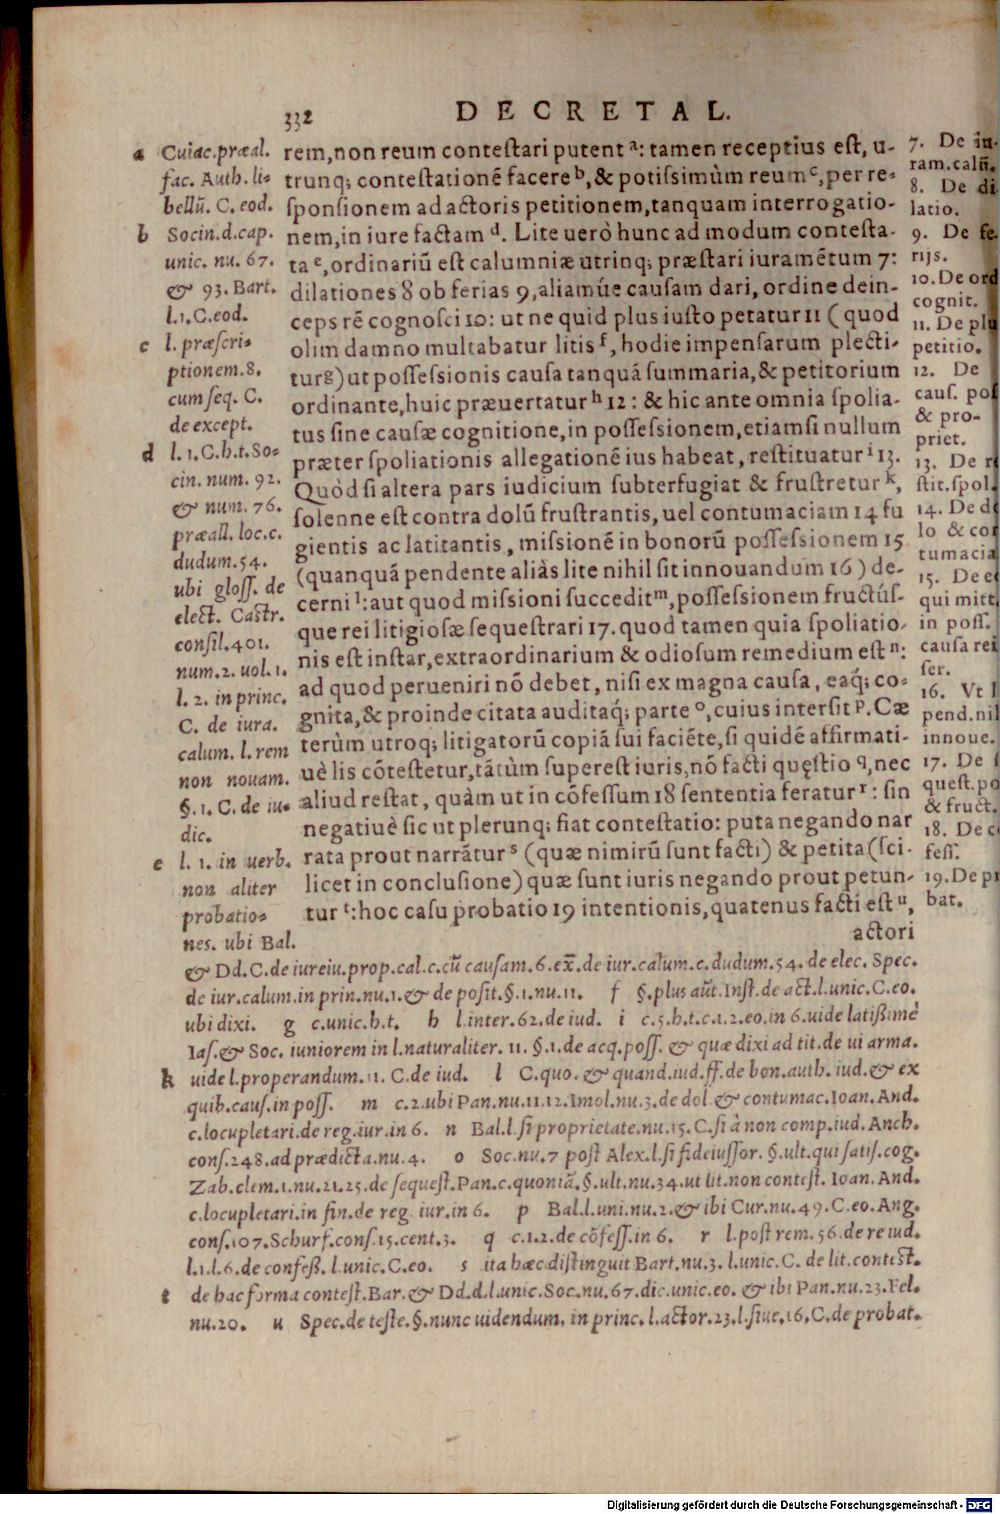 332 DECRETAL.
rem, non reum contestari putent a: tamen receptius est, u-
trunq; contestationē facere b, & potissimùm reum c, per re-
sponsionem ad actoris petitionem, tanquam interrogatio-
nem, in iure factam d. Lite uerò hunc ad modum contesta-
ta e, ordinariū est calumniæ utrinq; præstari iuramētum 7:
dilationes 8 ob ferias 9, aliamúe causam dari, ordine dein-
ceps rē cognosci 10: ut ne quid plus iusto petatur 11 (quod
olim damno multabatur litis f, hodie impensarum plecti-
tur g) ut possessionis causa tanquā summaria, & petitorium
ordinante, huic præuertatur h 12: & hic ante omnia spolia-
tus sine causæ cognitione, in possessionem, etiamsi nullum
præter spoliationis allegationē ius habeat, restituatur i 13.
Quòd si altera pars iudicium subterfugiat & frustretur k,
solenne est contra dolū frustrantis, uel contumaciam 14 fu
gientis ac latitantis, missionē in bonorū possessionem 15
(quanquā pendente aliàs lite nihil sit innouandum 16) de-
cerni l: aut quod missioni succedit m, possessionem fructús-
que rei litigiosæ sequestrari 17. quod tamen quia spoliatio-
nis est instar, extraordinarium & odiosum remedium est n:
ad quod perueniri nō debet, nisi ex magna causa, eaq́; co-
gnita, & proinde citata auditaq́; parte o, cuius intersit p. Cæ
terùm utroq; litigatorū copiā sui faciēte, si quidē affirmati-
uè lis cōtestetur, tātùm superest iuris, nō facti quęstio q, nec
aliud restat, quàm ut in cōfessum 18 sententia feratur r: sin
negatiuè sic ut plerunq; fiat contestatio: puta negando nar
rata prout narrātur s (quæ nimirū sunt facti) & petita (sci-
licet in conclusione) quæ sunt iuris negando prout petun-
tur t: hoc casu probatio 19 intentionis, quatenus facti est u,
actori
a Cuiac. præal.
fac. Auth. li-
bellū. C. eod.
b Socin. d. cap.
unic. nu. 67.
& 93. Bart.
l. 1. C. eod.
c l. præscri-
ptionem. 8.
cum seq. C.
de except.
d l. 1. C. h. t. So-
cin. num. 92.
& num. 76.
præall. loc. c.
dudum. 54.
ubi gloss. de
elect. Castr.
consil. 401.
num. 2. uol. 1.
l. 2. in princ.
C. de iura.
calum. l. rem
non nouam.
§. 1. C. de iu-
dic.
e l. 1. in uerb.
non aliter
probatio-
nes. ubi Bal.
& Dd. C. de iureiu. prop. cal. c. cū causam. 6. ex̄. de iur. calum. c. dudum. 54. de elec. Spec.
de iur. calum. in prin. nu. 1. & de posit. §. 1. nu. 11. f §. plus aūt. Inst. de act. l. unic. C. eo.
ubi dixi. g c. unic. h. t. h l. inter. 62. de iud. i c. 5. h. t. c. 1. 2. eo. in 6. uide latißimè
Ias. & Soc. iuniorem in l. naturaliter. 11. §. 1. de acq. poss. & quæ dixi ad tit. de ui arma.
k uide l. properandum. 11. C. de iud. l C. quo. & quand. iud. ff. de bon. auth. iud. & ex
quib. caus. in poss. m c. 2. ubi Pan. nu. 11. 12. Imol. nu. 3. de dol & contumac. Ioan. And.
c. locupletari. de reg. iur. in 6. n Bal. l. si proprietate. nu. 15. C. si à non comp. iud. Anch.
cons. 248. ad prædicta. nu. 4. o Soc. nu. 7 post Alex. l. si fideiussor. §. ult. qui satis. cog.
Zab. clem. 1. nu. 21. 25. de sequest. Pan. c. quoniā. §. ult. nu. 34. ut lit. non contest. Ioan. And.
c. locupletari. in fin. de reg. iur. in 6. p Bal. l. uni. nu. 2. & ibi Cur. nu. 49. C. eo. Ang.
cons. 107. Schurf. cons. 15. cent. 3. q c. 1. 2. de cōfess. in 6. r l. post rem. 56. de re iud.
l. 1. l. 6. de confeß. l. unic. C. eo. s ita hæc distinguit Bart. nu. 3. l. unic. C. de lit. contest.
t de hac forma contest. Bar. & Dd. d. l. unic. Soc. nu. 67. dic. unic. eo. & ibi Pan. nu. 23. Fel.
nu. 20. u Spec. de teste. §. nunc uidendum. in princ. l. actor. 23. l. siue. 16. C. de probat.
7. De iu-
ram. calū.
8. De di
latio.
9. De fe-
rijs.
10. De ord
cognit.
11. De plu
petitio.
12. De
caus. pos
& pro-
priet.
13. De re
stit. spol.
14. De do
lo & con
tumacia
15. De e
qui mitt.
in poss.
causa rei
ser.
16. Vt l
pend. nil
innoue.
17. De s
quest. po
& fruct.
18. De co
fess.
19. De pr
bat.
Digitalisierung gefördert durch die Deutsche Forschungsgemeinschaft - DFG